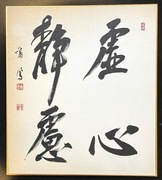 虚心
静慮